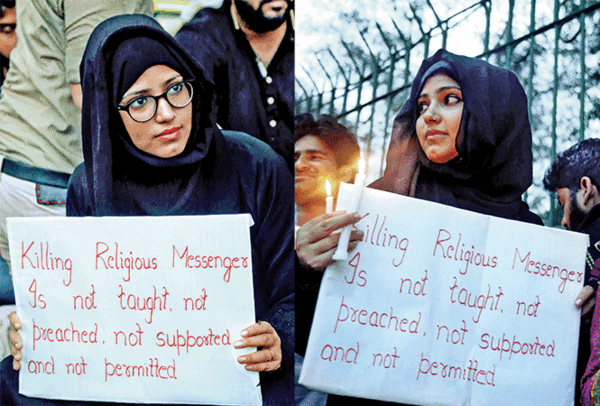 Killing Religious Messenger
Is not taught, not
preached, not supported
and not permitted
Killing Religious Messenger
Is not taught, not
preached, not supported
and not permitted